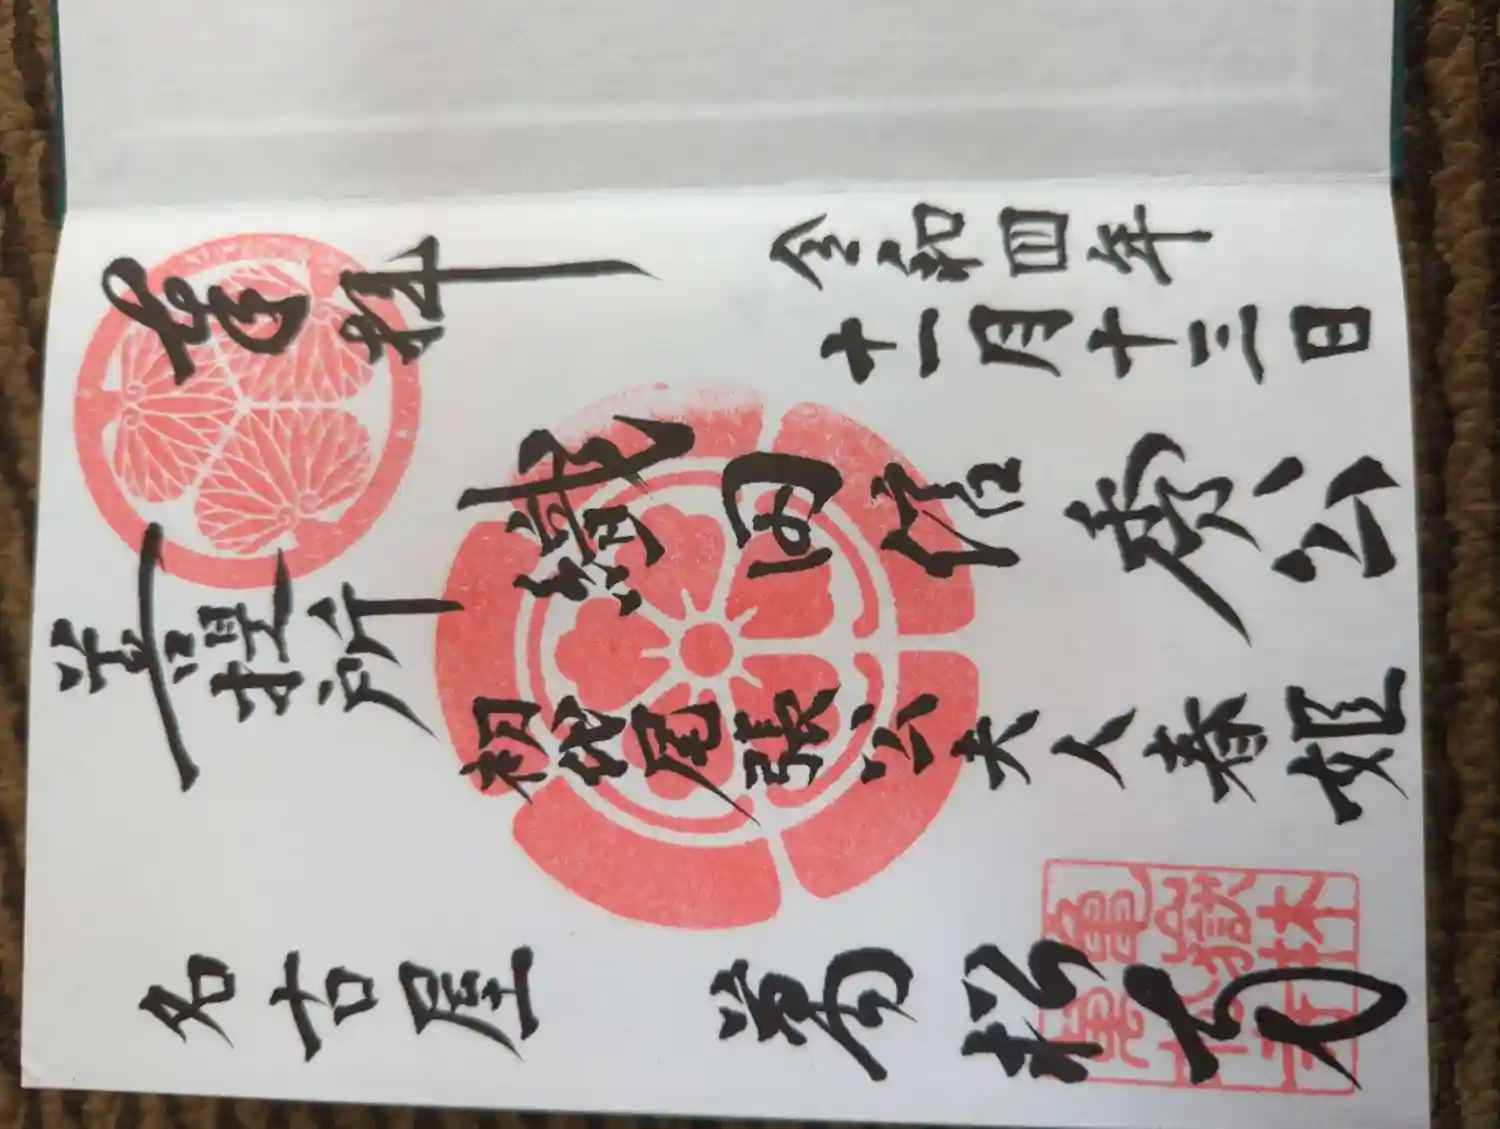 奉拝
令和四年
十一月十三日
織田信秀公
初代尾張公夫人春姫
菩提所
名古屋 萬松寺
亀嶽林萬松寺